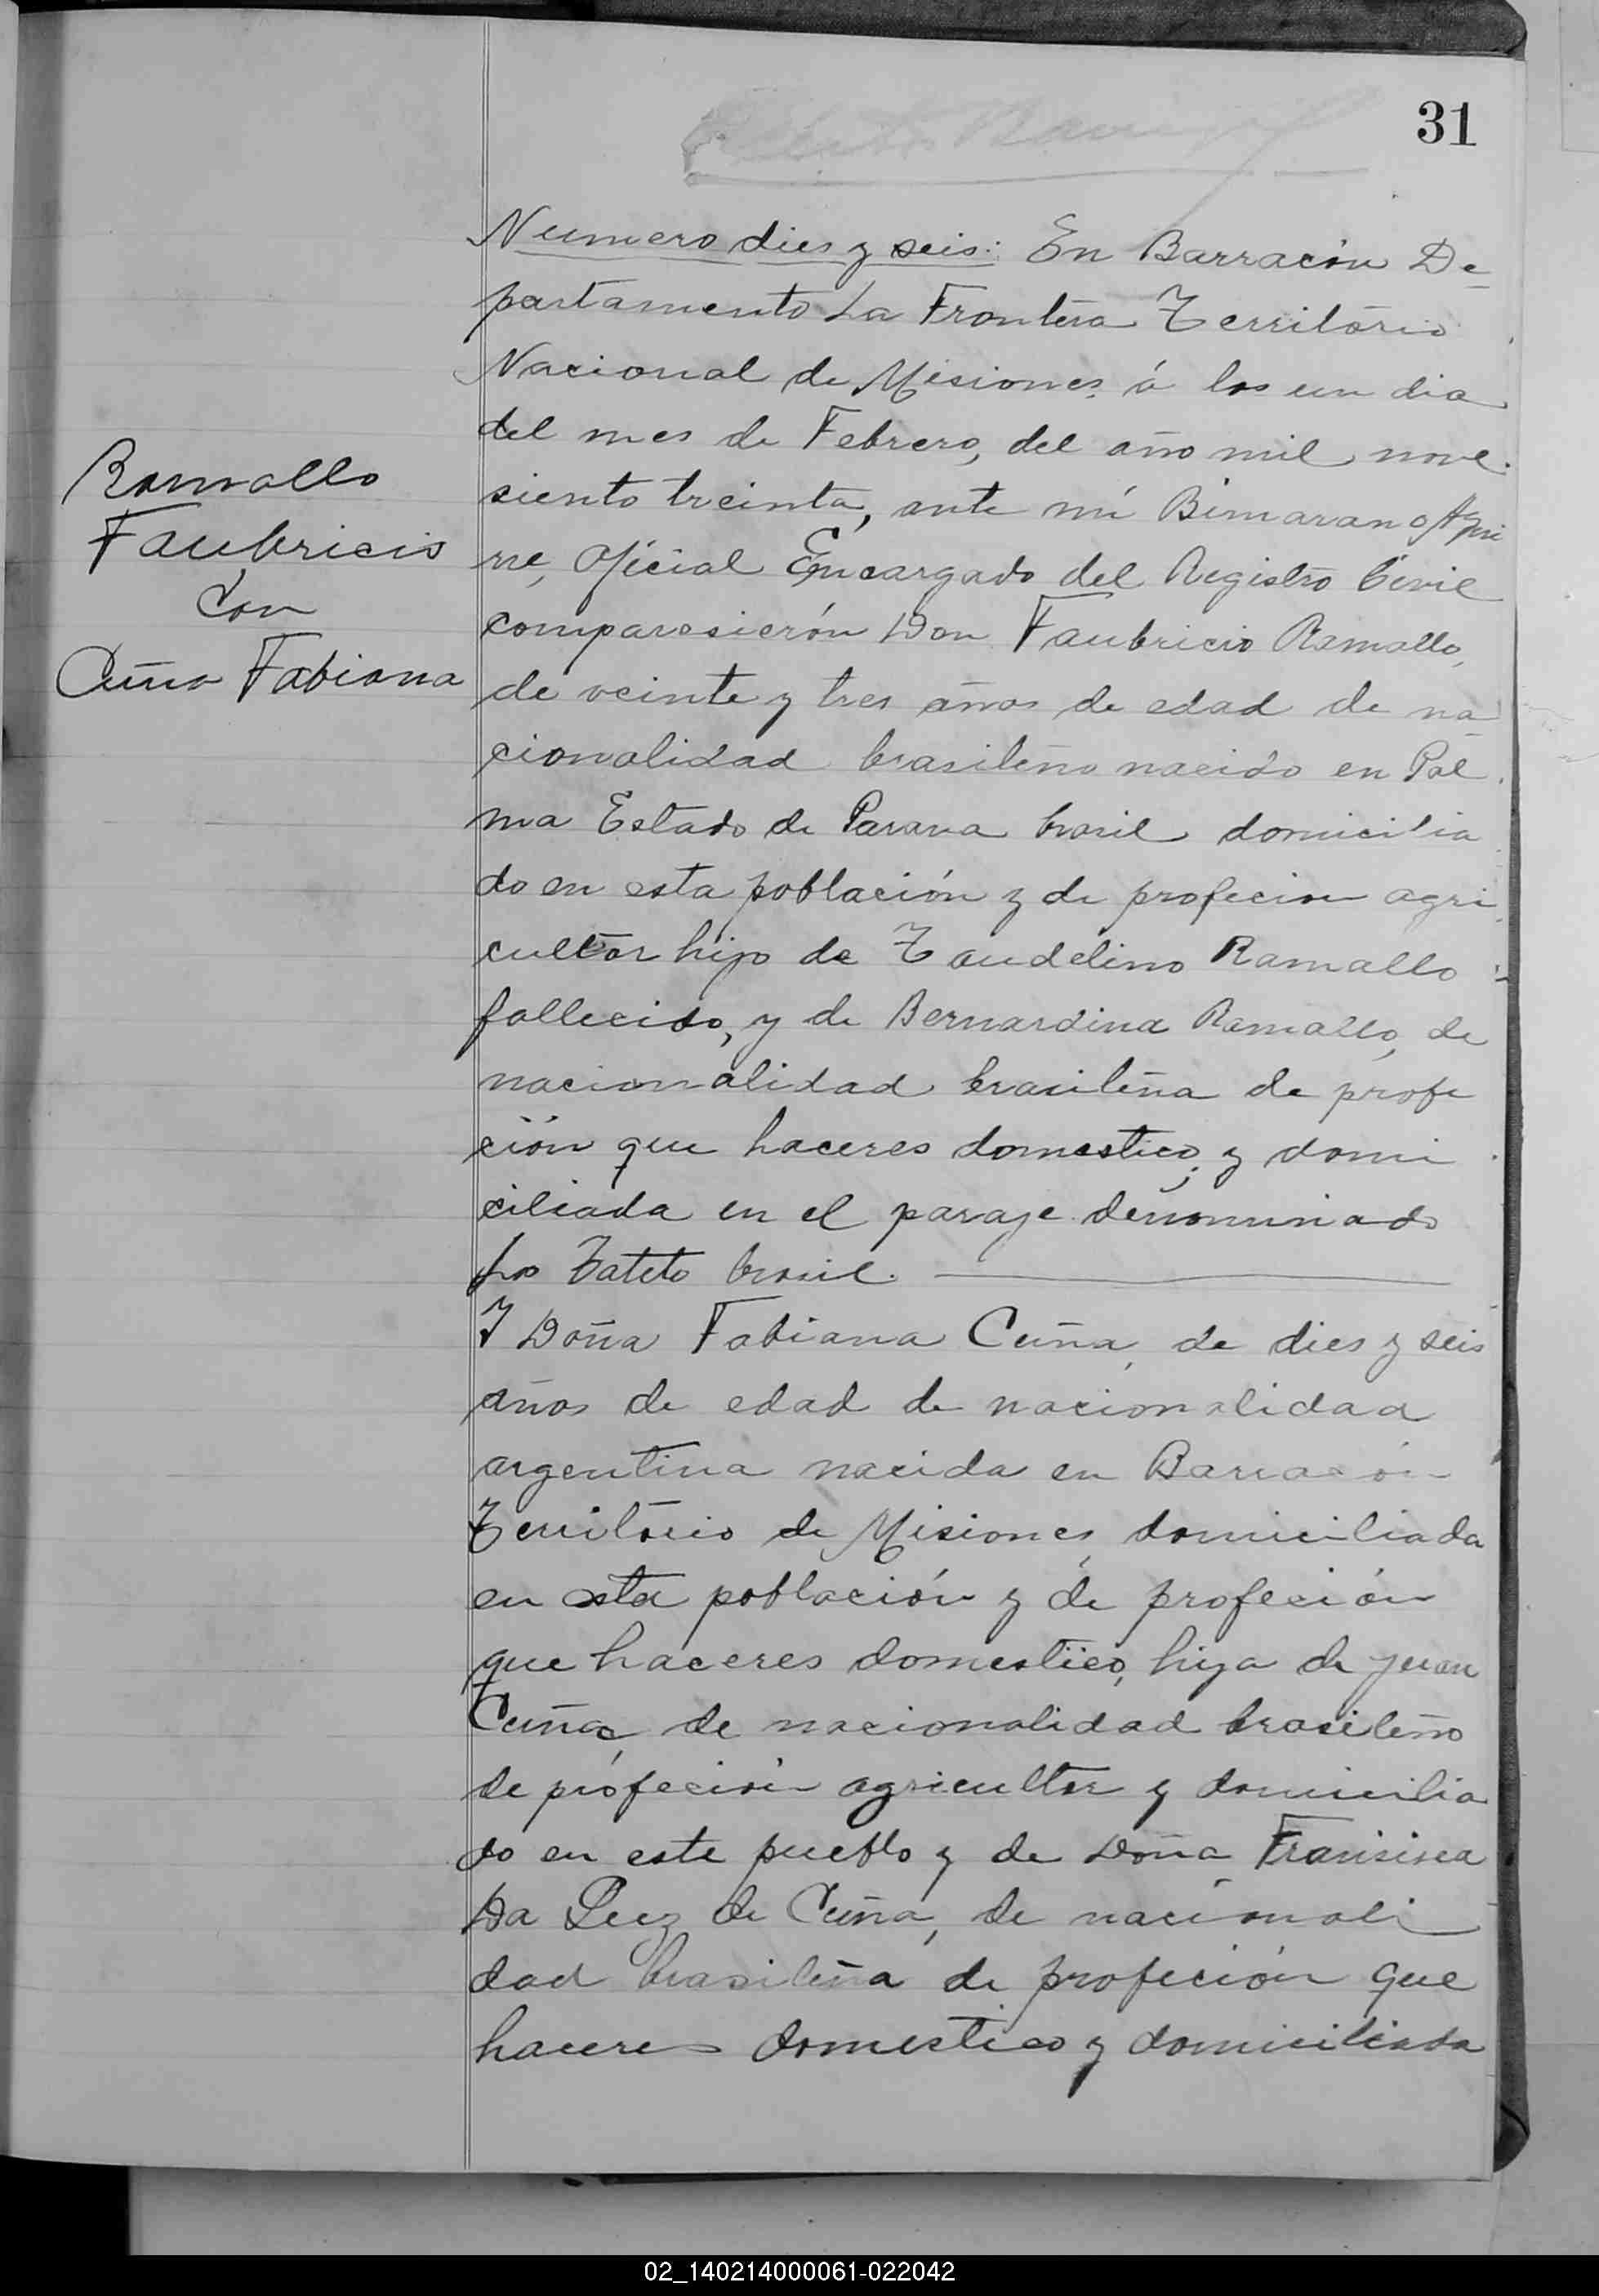 31
Numero dies y seis: En Barracón De-
partamento La Frontera Territorio
Nacional de Misiones, á los un dia
del mes de Febrero, del año mil nove-
siento treinta, ante mi Bimarano Agui
rre, Oficial Encargado del Registro Civil
comparesierón Don Faubricio Ramallo,
de veinte y tres años de edad de na
cionalidad brasileño nacido en Pal
ma Estado de Parana brasil domicilia
do en esta población y de profecion agri
cultor hijo de Taudelino Ramallo
fallecido, y de Bernardina Ramallo, de
nacionalidad brasileña de profe
ción que haceres domestico, y domi
ciliada en el paraje denominado
Los Tateto brasil.
Y Doña Fabiana Cuña, de dies y seis
años de edad de nacionalidad
argentina nacida en Barracón
Territorio de Misiones, domiciliada
en esta población y de profeción
que haceres domestico, hija de Juan
Cuña, de nacionalidad brasileño
de profeción agricultor y domicilia
do en este pueblo y de Doña Fransisca
Da Luz de Cuña, de nacionali
dad brasileña de profeción que
haceres domestico y domiciliada
Ramallo
Faubricio
Con
Cuña Fabiana
02_140214000061-022042